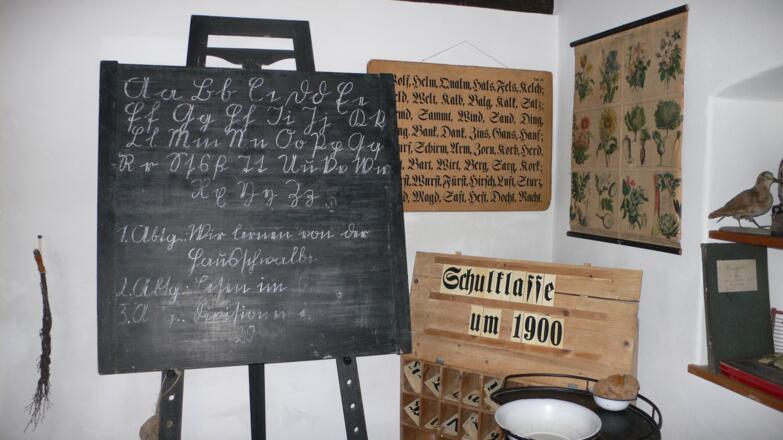 Aa Bb Cc Dd Ee
Ff Gg Hh Ii Jj Kk
Ll Mm Nn Oo Pp Qq
Rr Sſsß Tt Uu Vv Ww
Xx Yy Zz
1. Abtg.: Wir lernen von der
Hausschwalbe
2. Abtg.: Lesen im
3. A
Division
Wolf, Helm, Qualm, Hals, Fels, Kelch;
Welt, Kalb, Balg, Kalk, Salz;
Samt, Wind, Sand, Ding,
Bank, Dank, Zins, Gans, Hanf;
Schirm, Arm, Zorn, Korb, Herd,
Bart, Wirt, Berg, Sarg, Kork;
Wurst, Fürst, Hirsch, Luft, Sturz,
Magd, Saft, Heft, Docht, Nacht.
Schulklasse
um 1900